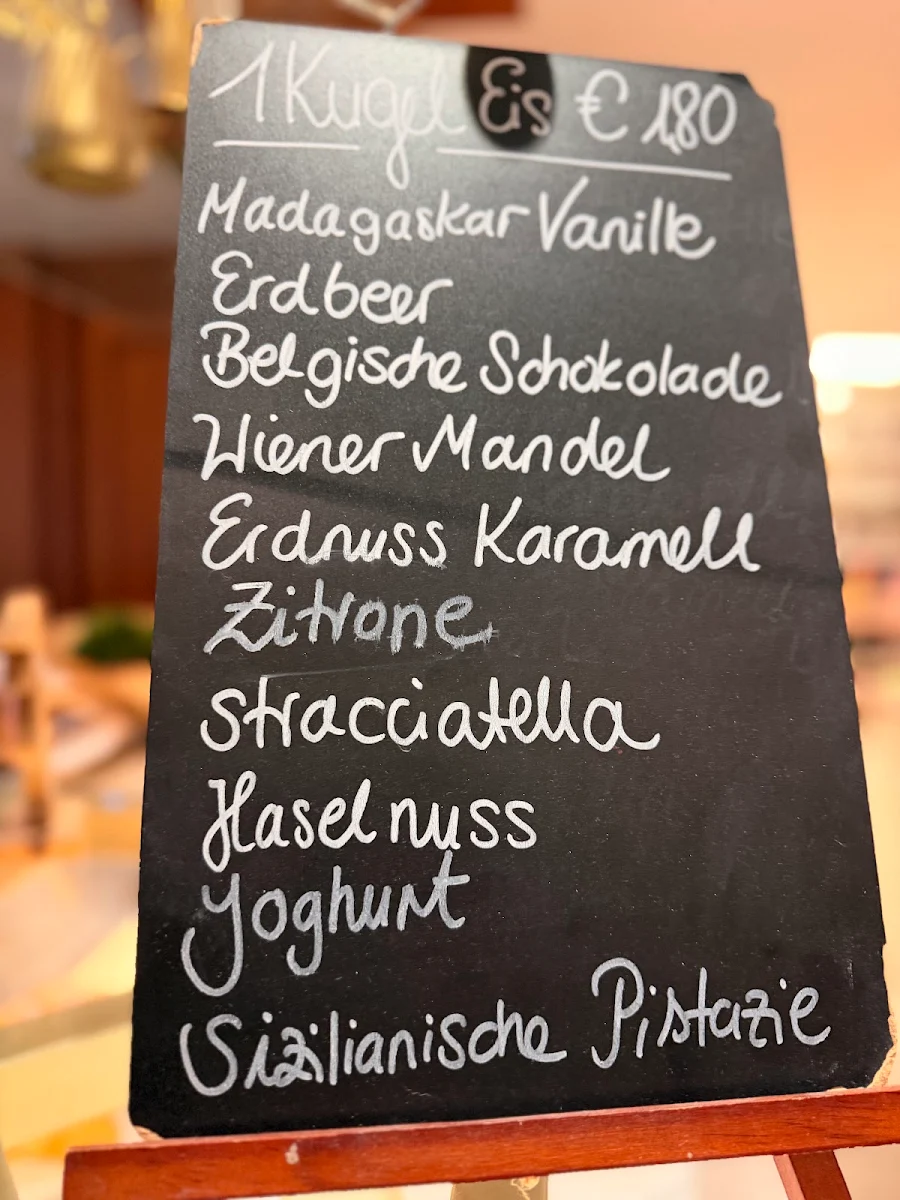 1 Kugel Eis € 1,80
Madagaskar Vanille
Erdbeer
Belgische Schokolade
Wiener Mandel
Erdnuss Karamell
Zitrone
Stracciatella
Haselnuss
Yoghurt
Sizilianische Pistazie